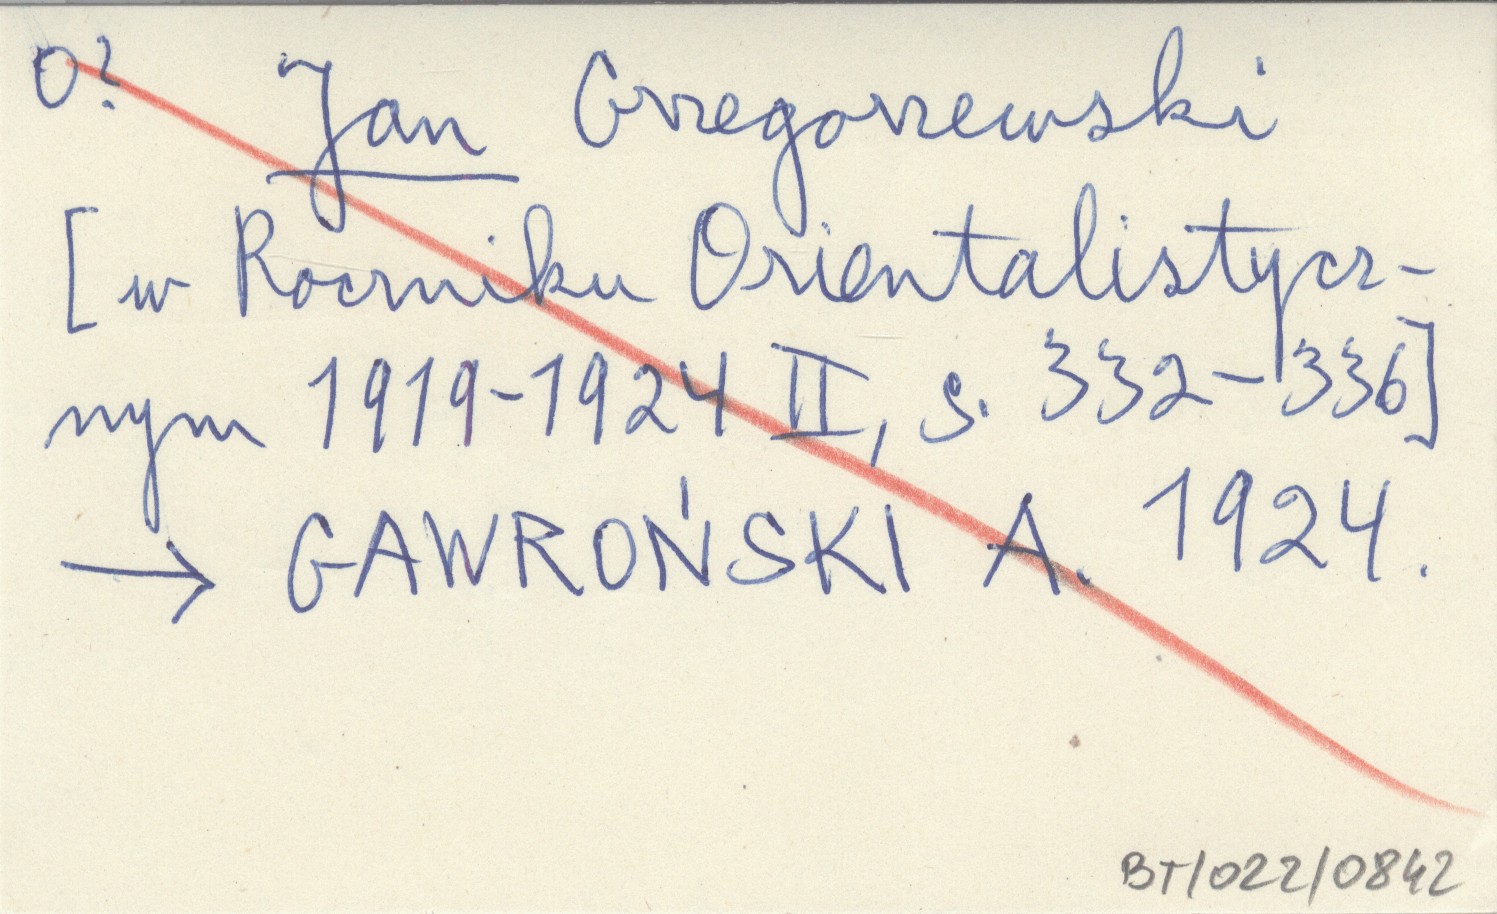 O? Jan Grzegorzewski
[w Roczniku Orientalistycz-
nym 1919-1924 II, s. 332-336]
→ GAWROŃSKI A. 1924.
BT/022/0842